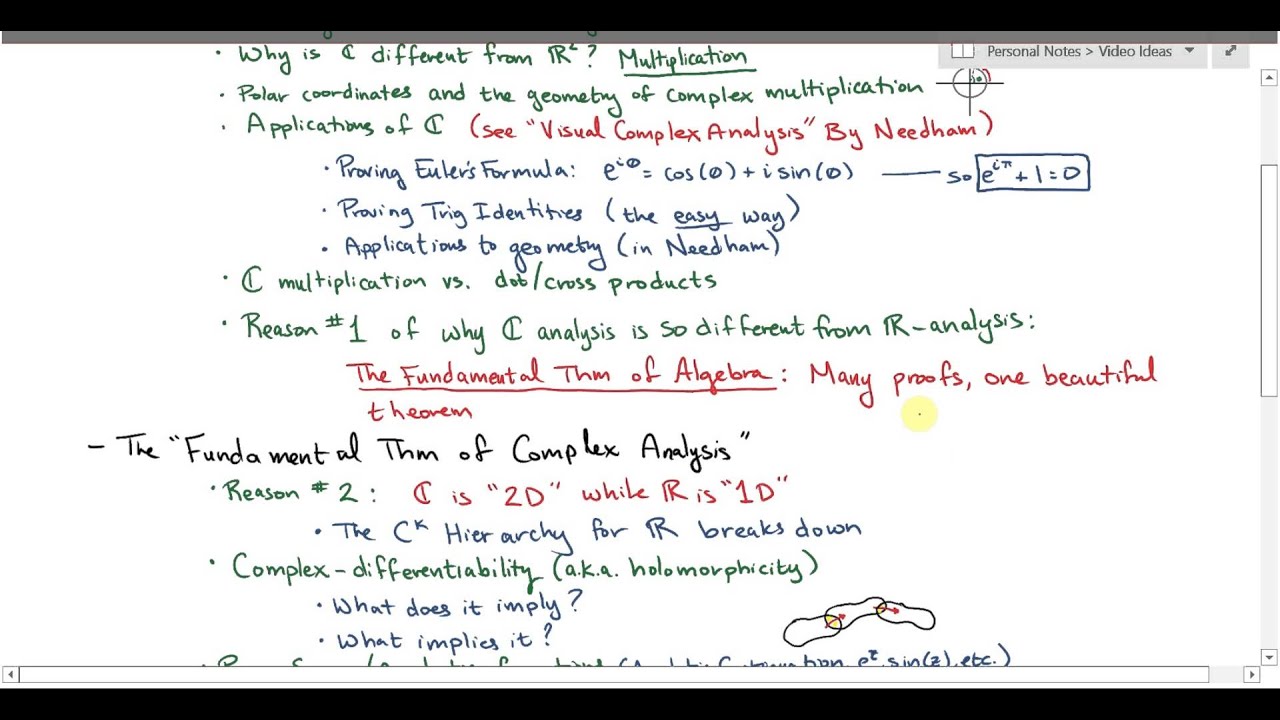 Personal Notes > Video Ideas
• Why is ℂ different from ℝ²? Multiplication
• Polar coordinates and the geometry of complex multiplication
• Applications of ℂ (see "Visual Complex Analysis" By Needham)
• Proving Euler's Formula: e^{iθ} = cos(θ) + i sin(θ) —— so e^{iπ} + 1 = 0
• Proving Trig Identities (the easy way)
• Applications to geometry (in Needham)
• ℂ multiplication vs. dot/cross products
• Reason #1 of why ℂ analysis is so different from ℝ-analysis:
The Fundamental Thm of Algebra: Many proofs, one beautiful
theorem
- The "Fundamental Thm of Complex Analysis"
• Reason # 2: ℂ is "2D" while ℝ is "1D"
• The C^k Hierarchy for ℝ breaks down
• Complex-differentiability (a.k.a. holomorphicity)
• What does it imply?
• What implies it?
e^z, sin(z), etc.)